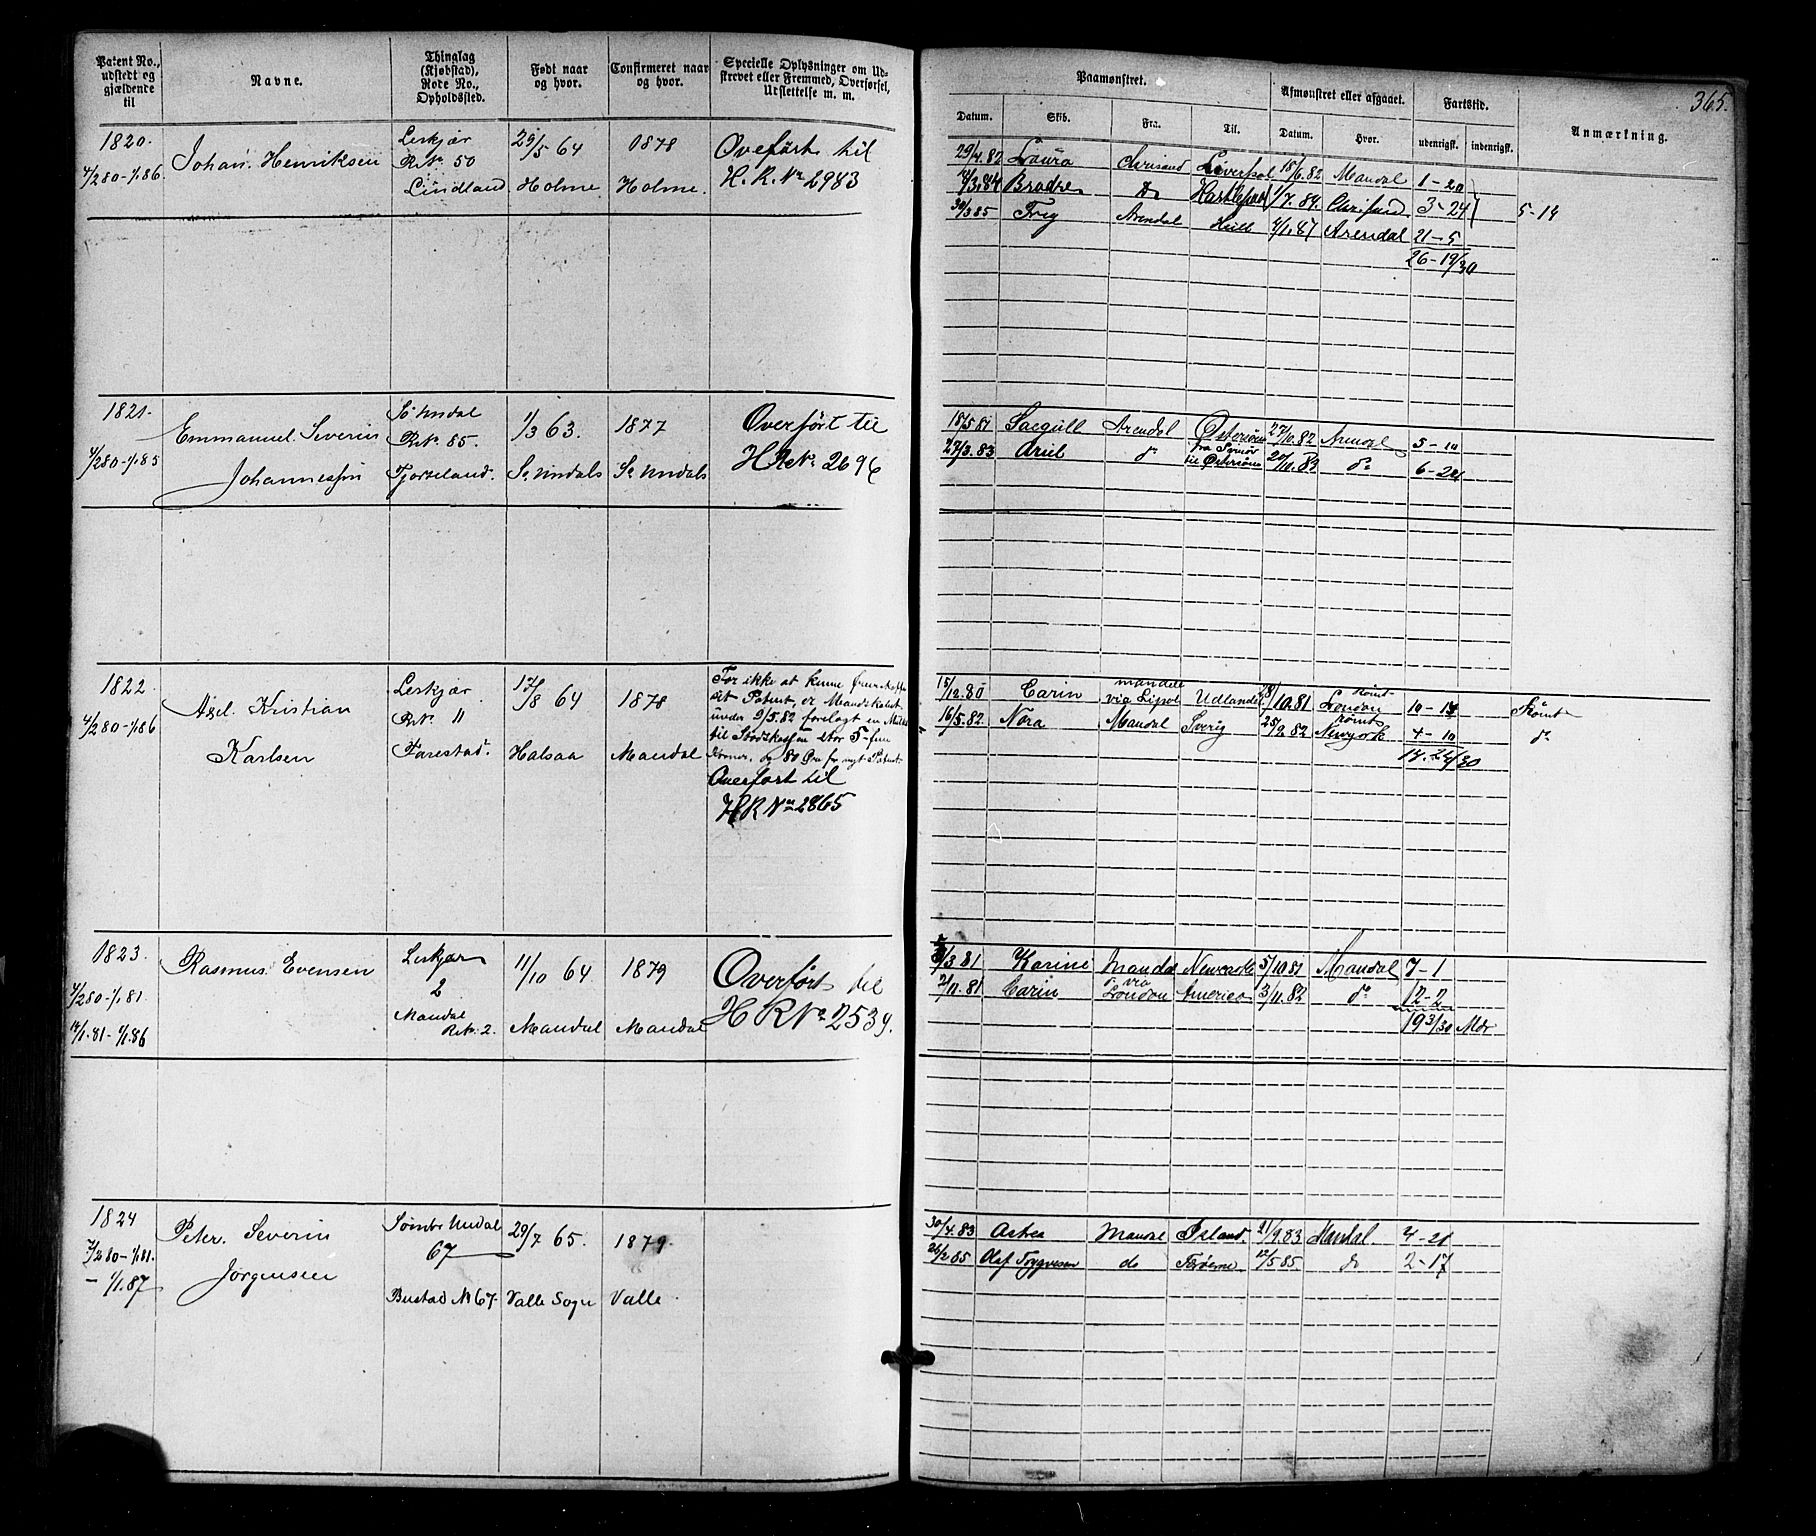 Patent No., udstedt og gjældende til
Navne.
Thinglag (Kjøbstad), Rode No., Opholdssted.
Født naar og hvor.
Confirmeret naar og hvor.
Specielle Oplysninger om Udskrevet eller Fremmed, Overførsel, Udslettelse m. m.
1820. Johan Henriksen Leskjær 29/5 64 1878 Oveført til
1/2 80-1/1 86. R.No 50 H. R. No 2983
Lindland Holme Holme.
1821. Emmanuel Severin Sö Undal 1/3 63. 1877 Overført til
1/2 80-1/1 85 R.No 85. H R No 2696
Johannessen Fjorkeland. S. Undals S. Undals
1822. Axel Kristian Leskjær 17/8 64 1878 For ikke at kunne
sit Patent, er Mandskabet
1/2 80-1/1 86 R.No 11 under 9/5.82 forelagt en Mulkt
Karlsen Farestad. Halsaa Mandal
Kroner, og 80 Øre for nyt Patent
Overført til
H R No 2865
1823. Rasmus Evensen Leskjær 11/10 64 1879 Overført til
2
1/2 80-1/1 81. Mandal H R No 2539.
14/1.81-1/1.86 R.No 2. Mandal Mandal
1824 Peter Severin Søndre Undal 29/7 65. 1879.
1/2 80-1/1 81. 67
- 1/1.87 Jørgensen
Bustad No 67. Valle Sogn Valle.
365.
Paamønstret. Afmønstret eller afgaaet. Fartstid. Anmærkning.
Datum. Skib. Fra. Til. Datum. Hvor. udenrigsk. indenrigsk.
29/4.82 Laura Chrisand Liverpol 15/6.82 Mandal 1-20
3.84 Brødre Do Hartlepool 1/7.84. Chrisand 3-24 5-14
30/3 85 Trig Arendal Hull 4/1.87 Arendal 21-5
26-19/30
18/5 81 Saegull Arendal Osterisøen 27/10.82 Arendal 5-10
27/3.83 Ariel do til Osterisøen 20/10.83 do 6-24
15/12.80 Carin via Lipol Udlandet 28/10.81 Rømt London 10-14 Rømt
16/5.82. Nora Mandal Sverig 25/9.82 rømt Newyork 4-10 do
14.24/30
3.81 Karine Mandal Newcastle 5/10.81 Mandal 7-1
2/11.81 Carin do via London America 3/11.82 do 12-2
19 3/30 Mdr
30/4.83 Astrea Mandal Island. 21/9.83 Mandal. 4-21
26/2 85 Olaf Tryggvesen do Færøerne 12/5 85. do 2-17